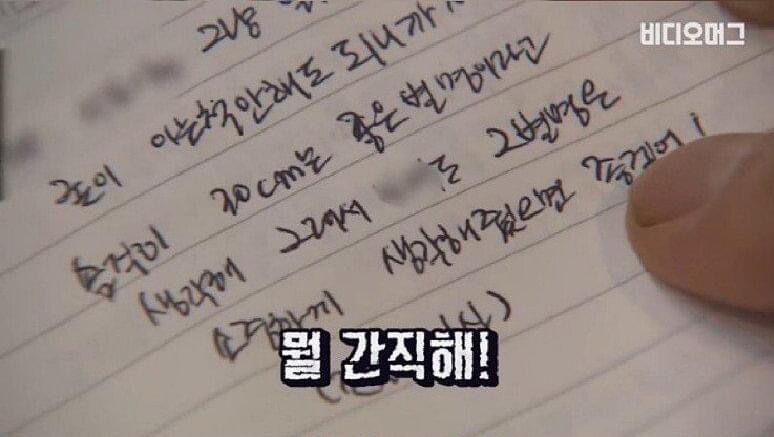 비디오머그
그냥
굳이 아는척안해도 되니까
솔직히 30cm는 좋은별명이라고
생각해 그래서 도 그별명은
소중하게 생각해줬으면 좋겠어!
뭘 간직해!